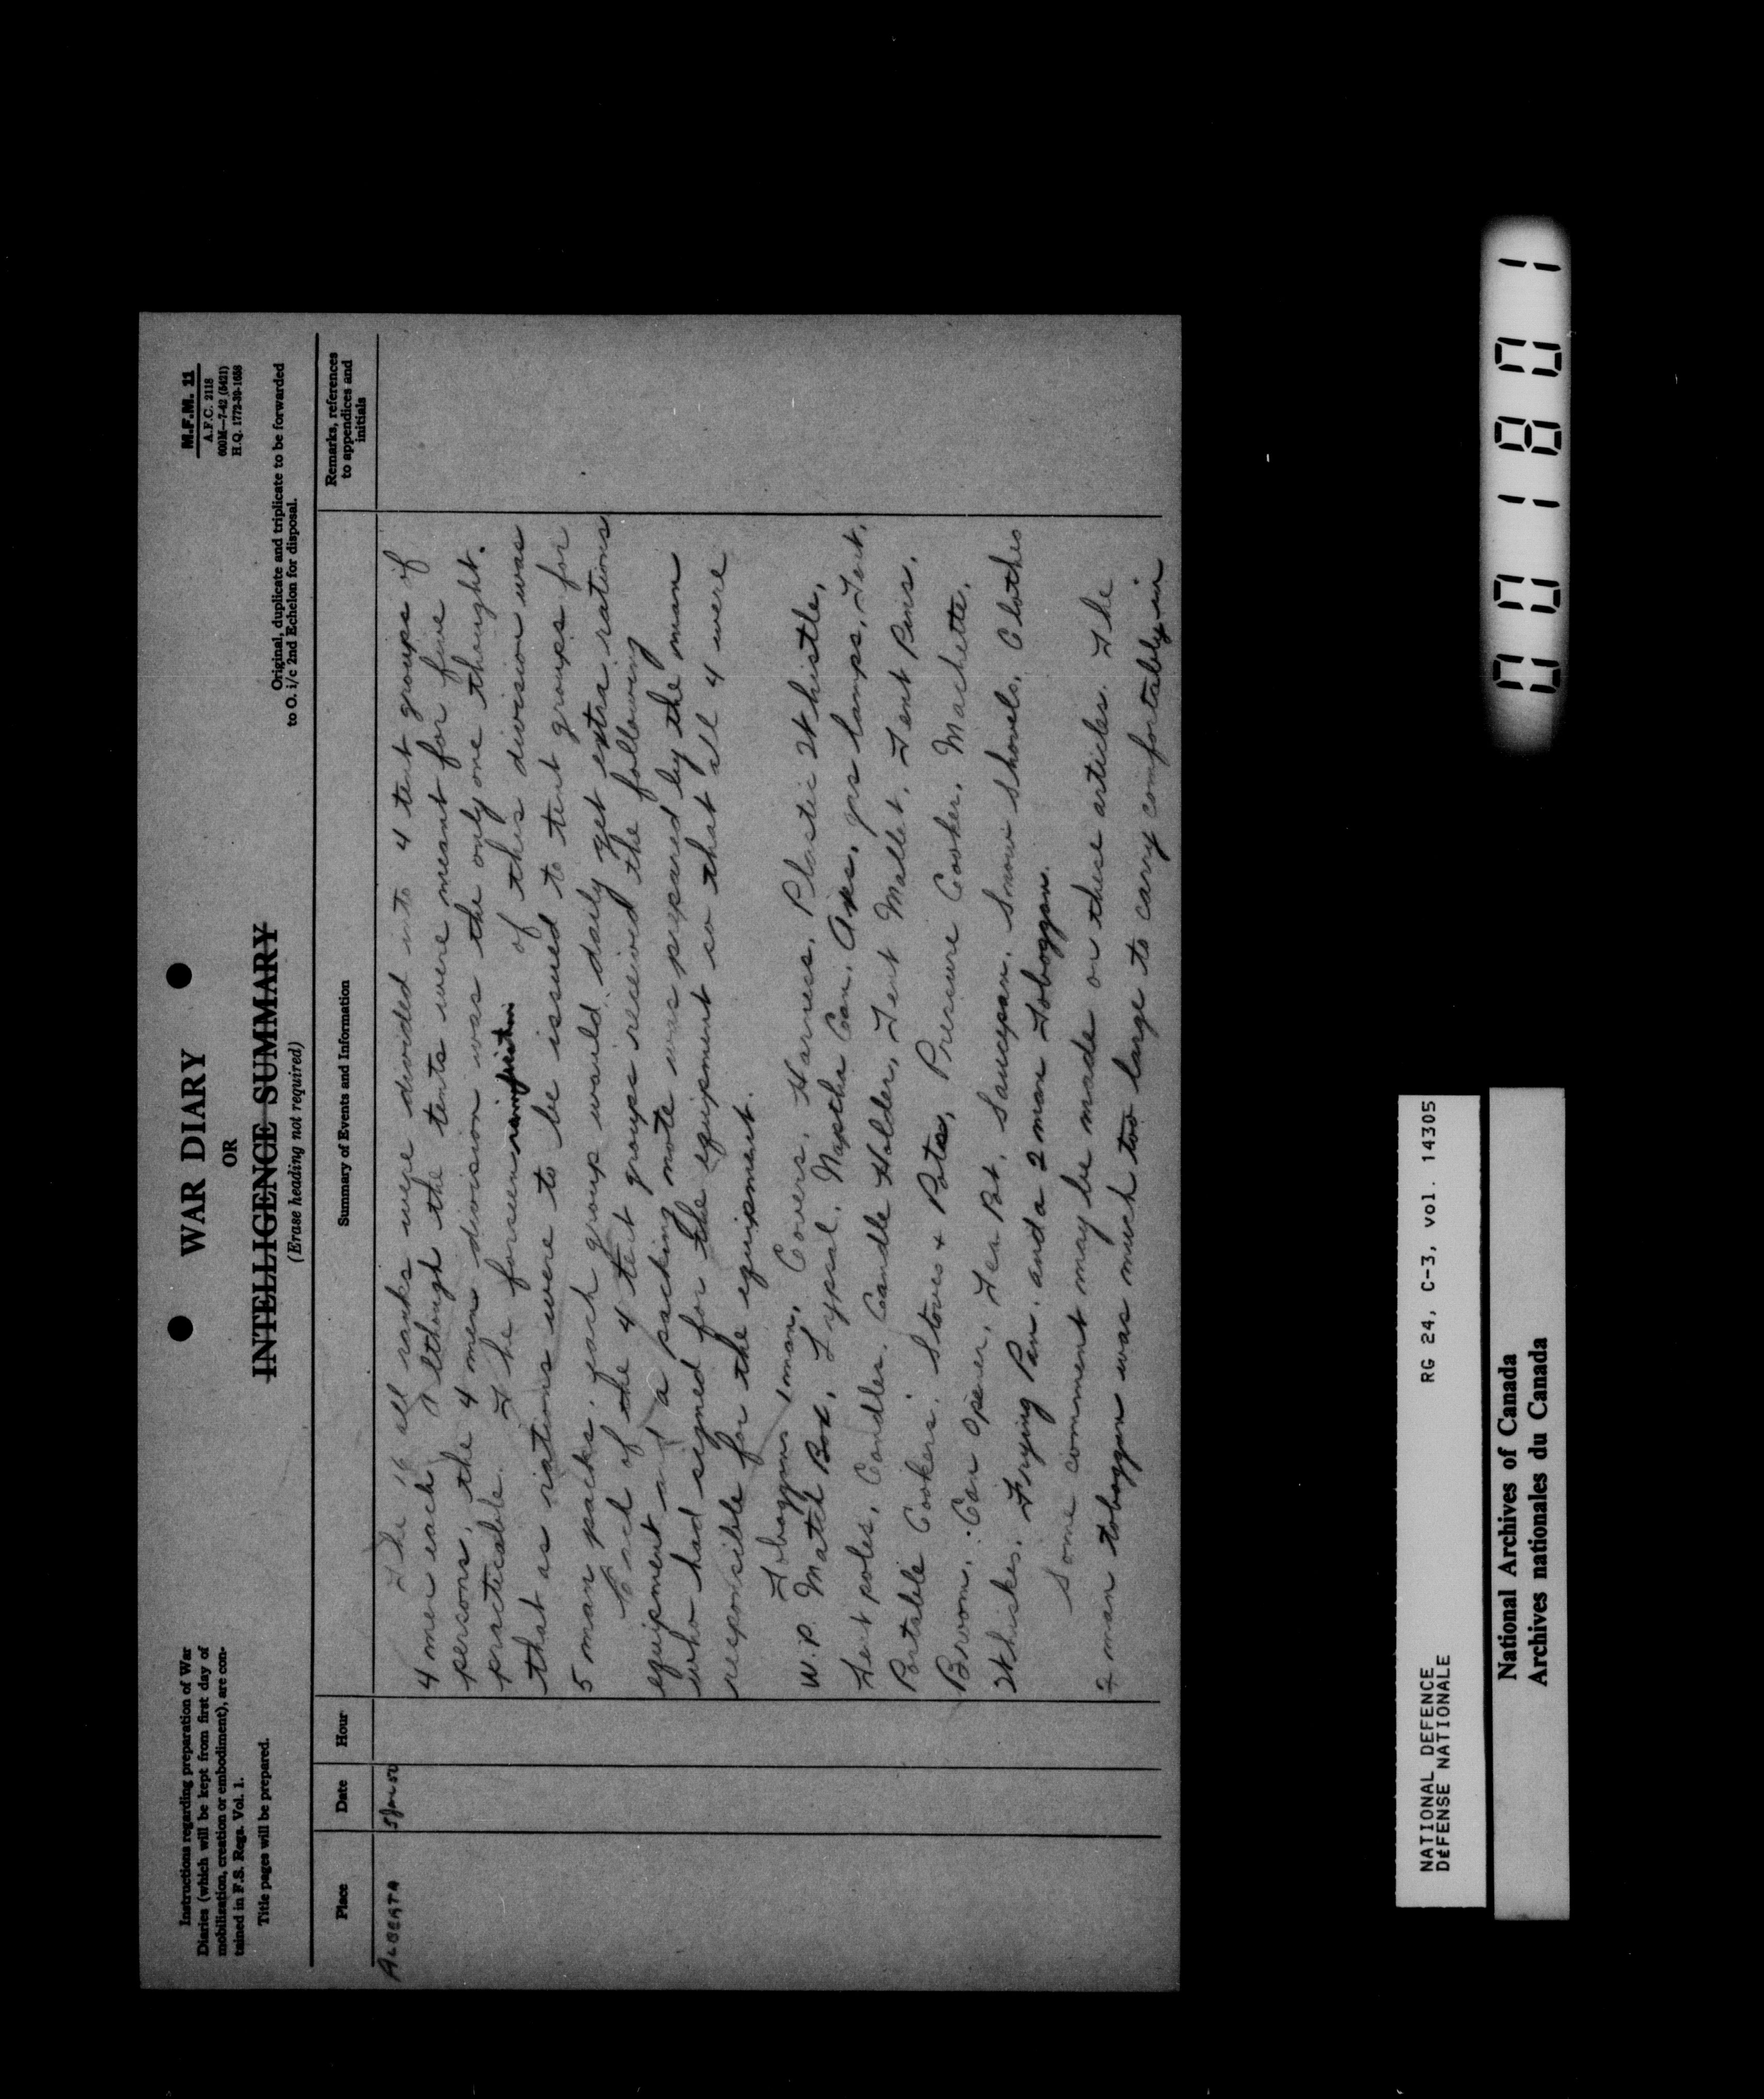 Instructions regarding preparation of War
Diaries (which will be kept from first day of
mobilization, creation or embodiment), are con-
tained in F.S. Regs. Vol. 1.
Title pages will be prepared.
WAR DIARY
OR
INTELLIGENCE SUMMARY
(Erase heading not required)
M.F.M. 11
A.F.C. 2118
600M—7-42 (5421)
H.Q. 1772-39-1658
Original, duplicate and triplicate to be forwarded
to O. i/c 2nd Echelon for disposal.
Place
Date
Hour
Summary of Events and Information
Remarks, references
to appendices and
initials
ALBERTA
5 Jan 50
The 16 all ranks were divided into 4 tent groups of
4 men each. Although the tents were meant for five
persons, the 4 men division was the only one thought
practicable. The forseen ramification of this division was
that as rations were to be issued to tent groups for
5 man packs, each group would daily get extra rations
Each of the 4 tent groups received the following
equipment and a packing note was prepared by the man
who had signed for the equipment so that all 4 were
responsible for the equipment.
Toboggans 1 man, Covers, Harness, Plastic Whistle,
W.P. Match Box, Lypsil, Naptha Can, Axes, gas lamps, Tent,
Tent poles, Candles, Candle Holders, Tent Mallet, Tent Pins,
Portable Cookers, Stoves + Pots, Pressure Cooker, Machette,
Broom, Can Opener, Tea Pot, Saucepan, Snow Shovels, Clothes
Whiskes, Frying Pan, and a 2 man Toboggan.
Some comment may be made on these articles. The
2 man toboggan was much too large to carry comfortably in
NATIONAL DEFENCE
DÉFENSE NATIONALE
RG 24, C-3, vol. 14305
National Archives of Canada
Archives nationales du Canada
001801